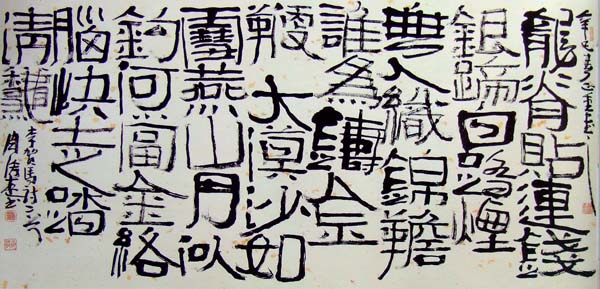 龍脊貼連錢
銀蹄白踏煙
無人織錦韂
誰為鑄金
鞭大漠沙如
雪燕山月似
鈎何當金絡
腦快走踏
清秋
李賀馬詩二首